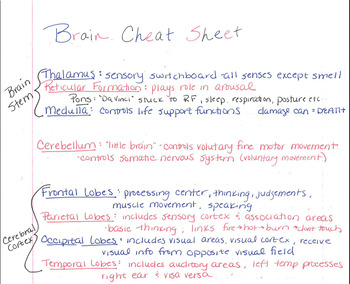 Brain Cheat Sheet
Brain Stem
Thalamus: sensory switchboard - all senses except smell
Reticular Formation: plays role in arousal
Pons: "DaVinci" stuck to RF, sleep, respiration, posture etc
Medulla: controls life support functions damage can = DEATH
Cerebellum: "little brain" - controls voluntary fine motor movement
- controls somatic nervous system (voluntary movement)
Cerebral Cortex
Frontal Lobes: processing center, thinking, judgements,
muscle movement, speaking
Parietal Lobes: includes sensory cortex & association areas
- basic thinking, links fire → hot → burn → don't touch
Occipital Lobes: includes visual areas, visual cortex, receive
visual info from opposite visual field
Temporal Lobes: includes auditory areas, left temp processes
right ear & visa versa